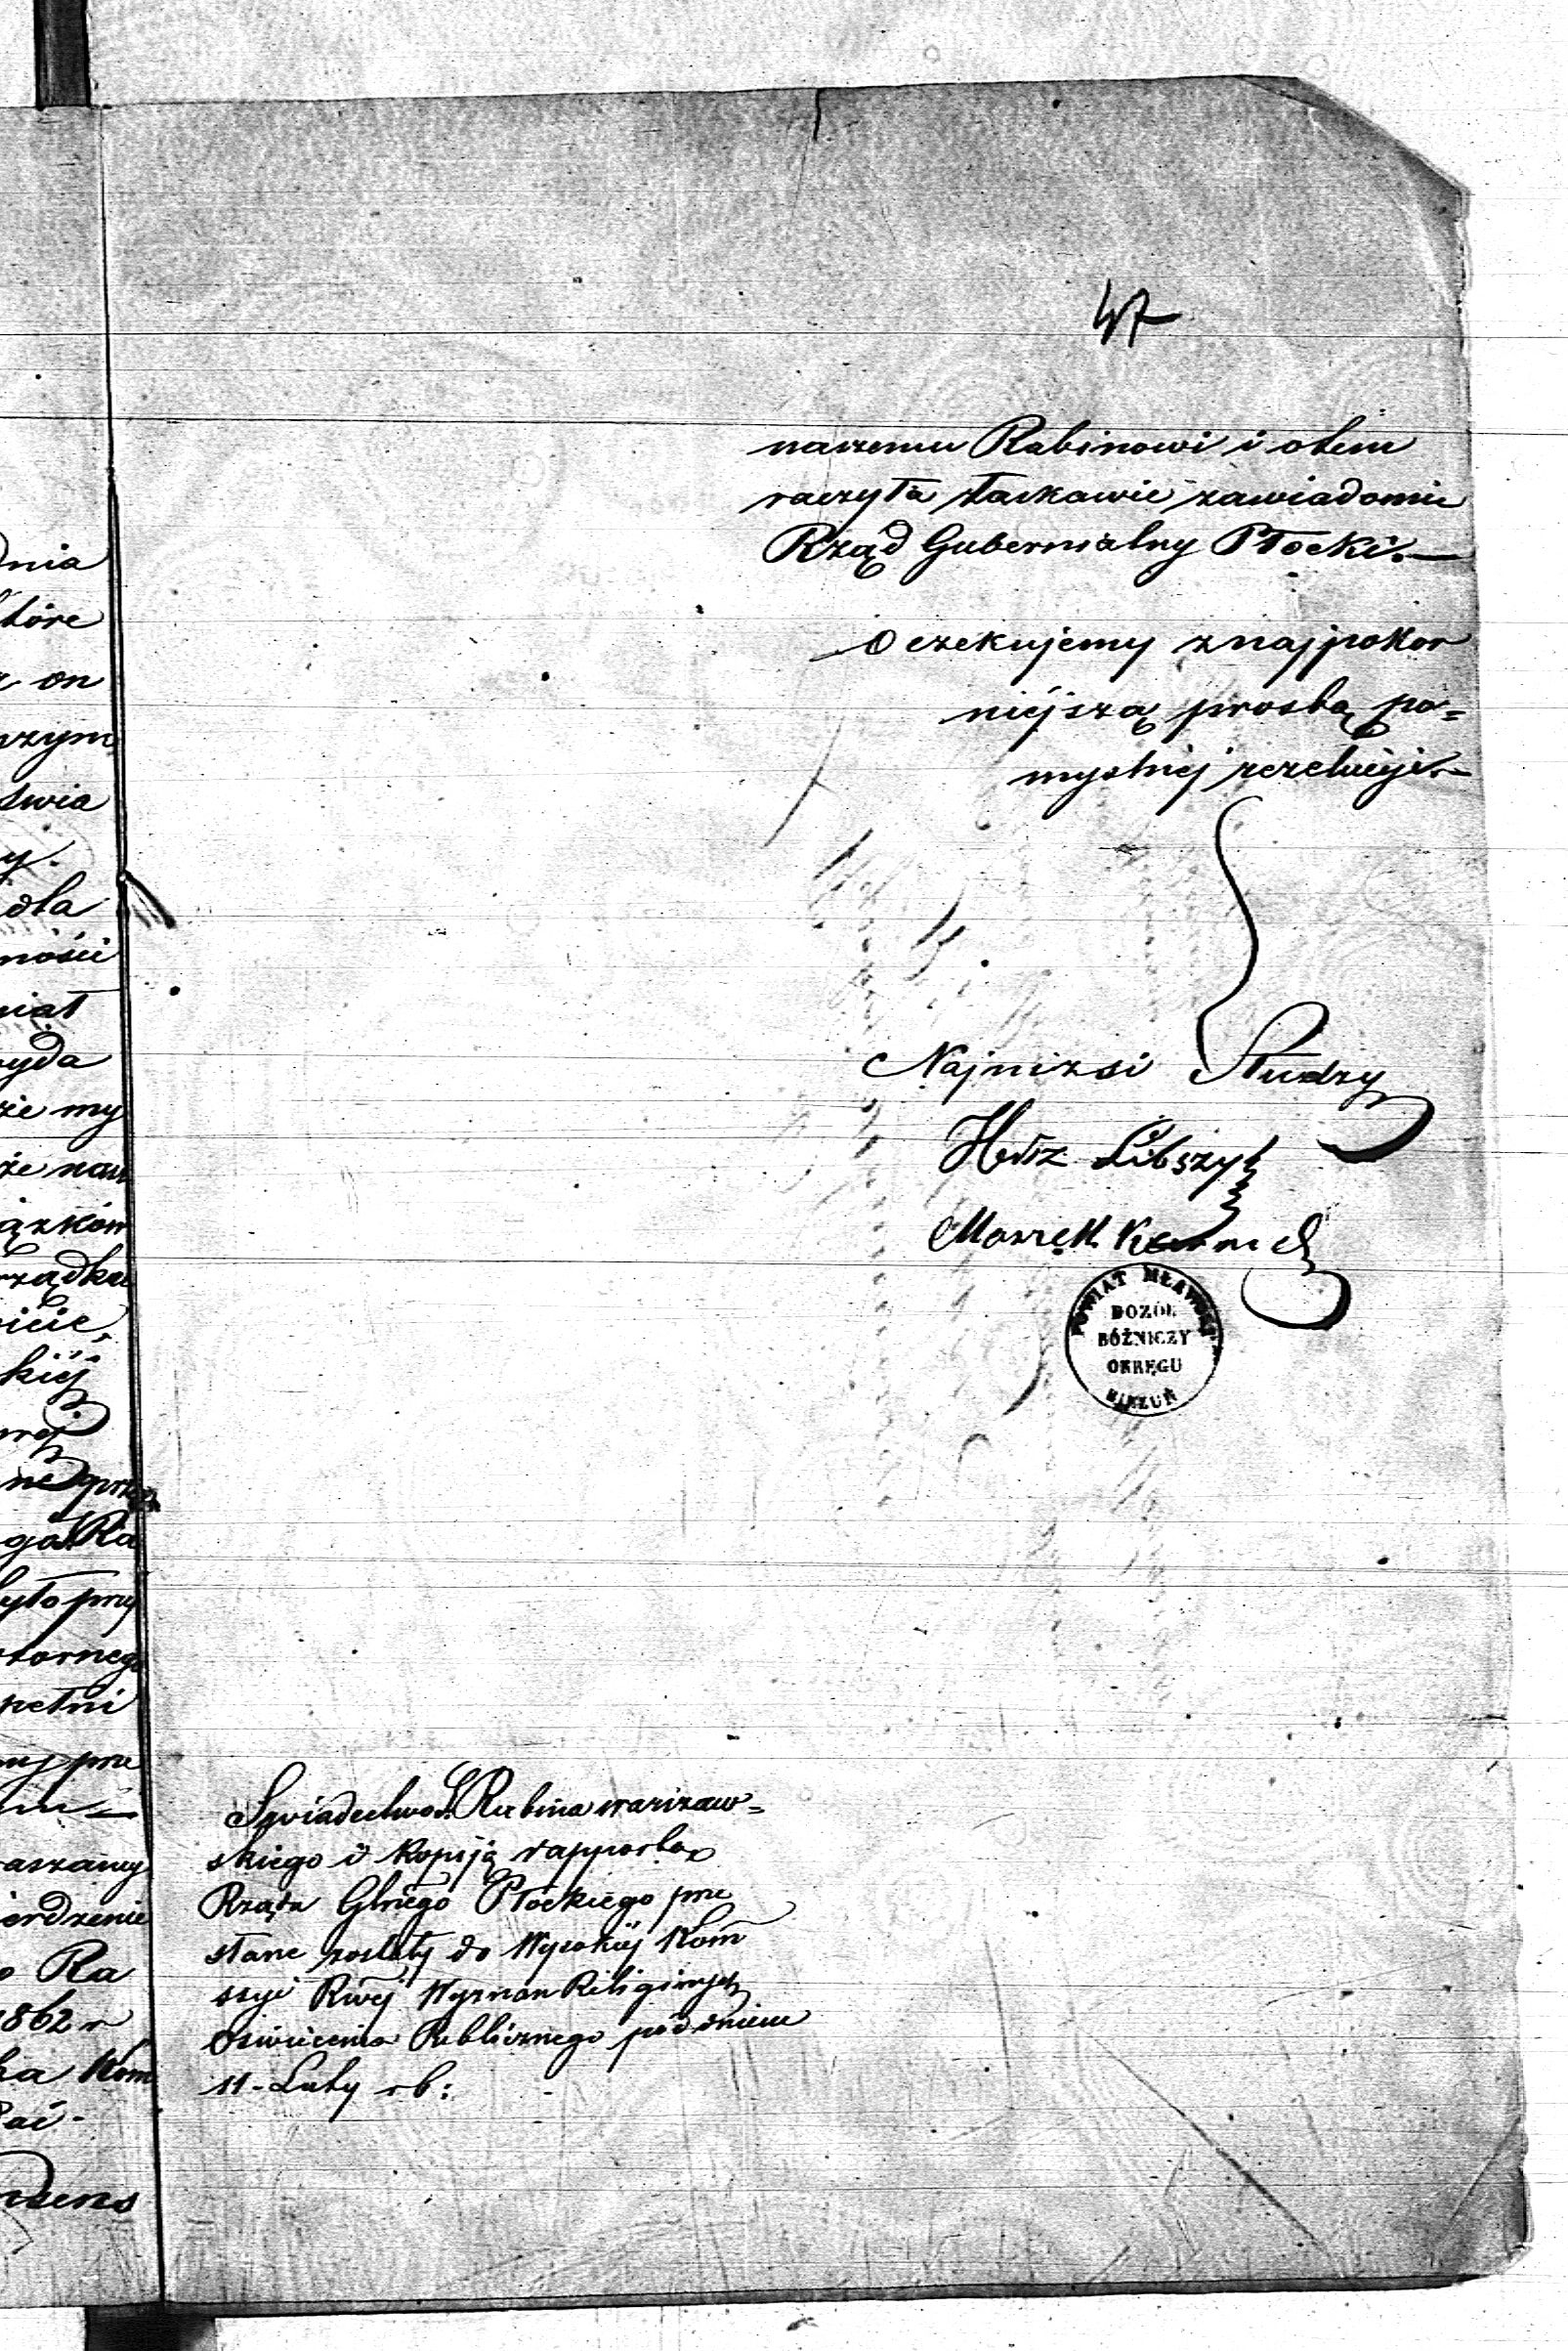 dnia
tóre
on
szym
świa
y.
dla
ności
niał
ryda
że my
że nam
iązków
rządku
icie,
kiéj
ne prze
go Ra
yło przy
tornego
pełni
prze
aszamy
erdzenie
o Ra
1862 r
ka Kom
47
naszemu Rabinowi i otem
raczyła łaskawie zawiadomić
Rząd Gubernialny Płocki.—
Oczekujemy z najpokor
niéjszą prosbą po=
myslnéj rezolucyi.—
Najnizsi Słudzy
Libszyt
POWIAT MŁAWSKI
DOZÓR
BÓŻNICZY
OKRĘGU
BIEŻUŃ
Swiadectwo Rabina warszaw=
skiego i kopiją rapportu
Rządu Glnego Płockiego prze
słane zostały do Wysokiéj Kom
ssyi Rwéj Wyznan Religijnych
Oswiecenia Publicznego pod dniem
11 - Luty rb: